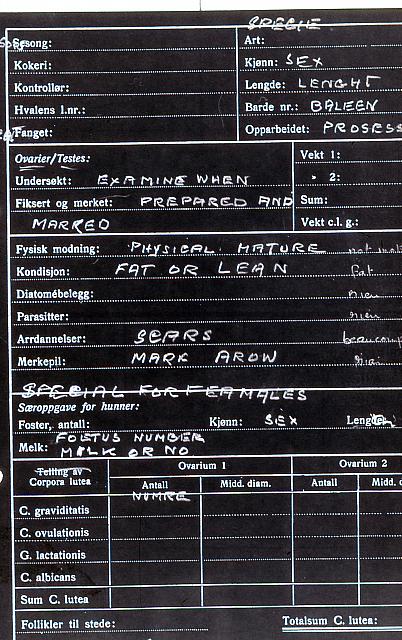 SPECIE
Sesong: Art:
Kokeri: Kjønn: SEX
Kontrollør: Lengde: LENGHT
Hvalens l.nr.: Barde nr.: BALEEN
Fanget: Opparbeidet: PROSESS
Ovarier/Testes: Vekt 1:
Undersøkt: EXAMINE WHEN » 2:
Fiksert og merket: PREPARED AND Sum:
MARRED Vekt c.l. g.:
Fysisk modning: PHYSICAL MATURE
Kondisjon: FAT OR LEAN fat
Diatomébelegg: rien
Parasitter: rien
Arrdannelser: SCARS beaucoup
Merkepil: MARK AROW
SPECIAL FOR FEAMALES
Særoppgave for hunner:
Foster, antall: Kjønn: SEX Leng
FOETUS NUMBER
Melk: MALK OR NO
Telling av Corpora lutea Ovarium 1 Ovarium 2
Antall Midd. diam. Antall Midd. d
NUMRE
C. graviditatis
C. ovulationis
G. lactationis
C. albicans
Sum C. lutea
Follikler til stede: Totalsum C. lutea: